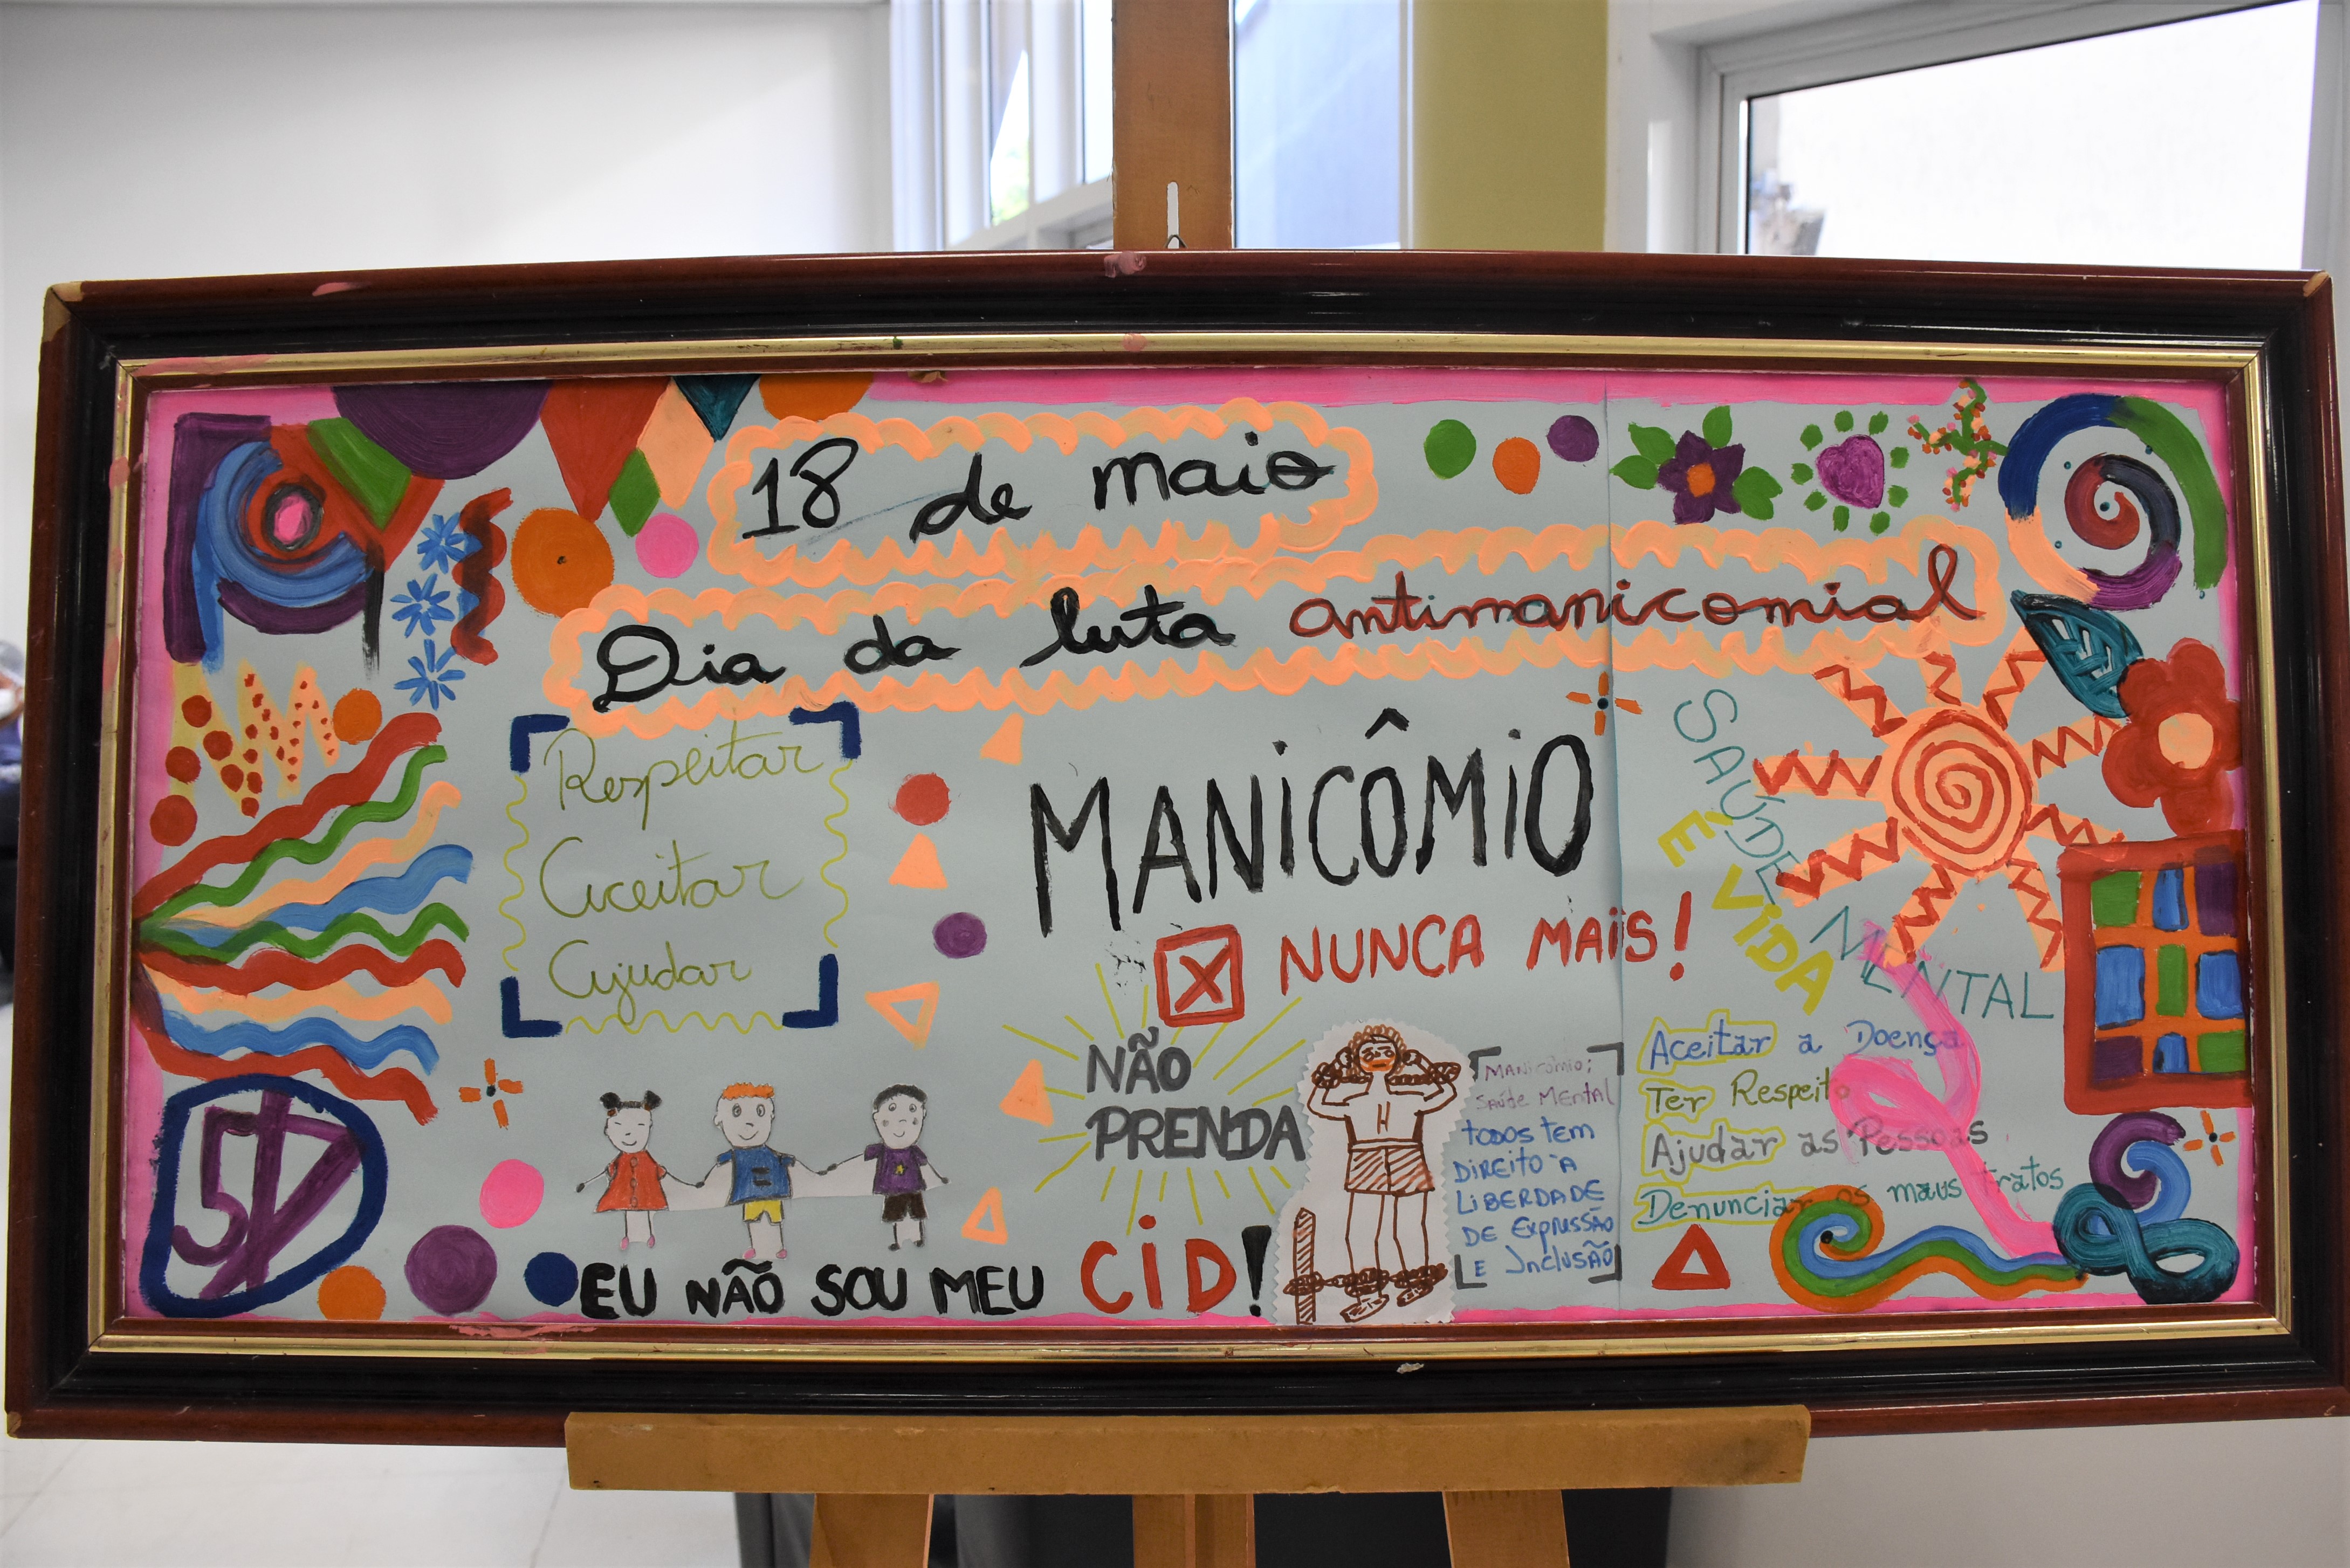 18 de maio
Dia da luta antimanicomial
Respeitar
Aceitar
Ajudar
MANICÔMIO
X NUNCA MAIS!
SAÚDE MENTAL
E VIDA
NÃO
PRENDA
H
MANICÔMIO;
SAÚDE MENTAL
TODOS TEM
DIREITO A
LIBERDADE
DE EXPRESSÃO
E INCLUSÃO
Aceitar a Doença
Ter Respeito
Ajudar as Pessoas
Denunciar os maus tratos
EU NÃO SOU MEU CID!